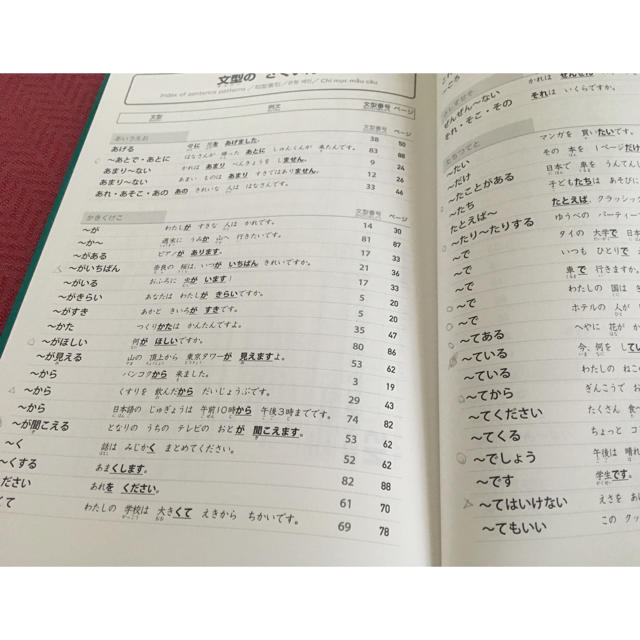 文型の
Index of sentence patterns
文型 例文 文型番号 ページ
あいうえお
あげる 母に 花を あげました。 38 50
～あとで・あとに はなさんが 帰った あとに しゅんくんが 来たんです。 83 88
あまり～ない かれは あまり べんきょうを しません。 9 24
あまり～ない あまい ものは あまり すきではありません。 12 26
あれ・あそこ・あの あの きれいな 人は はなさんです。 33 46
かきくけこ 文型番号 ページ
～が わたしが すきな 人は かれです。 14 30
～か～ 週末に うみか 山へ 行きたいです。 81 87
～がある ピアノが あります。 17 33
～がいちばん 奈良の 桜は、いつが いちばん きれいですか。 21 36
～がいる おふろに 虫が います！ 17 33
～がきらい あなたは わたしが きらいですか。 5 20
～がすき あかと きいろが すきです。 5 20
～かた つくりかたは かんたんですよ。 35 47
～がほしい 何が ほしいですか。 80 86
～が見える 山の 頂上から 東京タワーが 見えますよ。 53 62
～から バンコクから 来ました。 3 19
～から くすりを 飲んだから だいじょうぶです。 29 43
～から 日本語の じゅぎょうは 午前10時から 午後3時までです。 74 82
～が聞こえる となりの うちの テレビの おとが 聞こえます。 53 62
～く 話は みじかく まとめてください。 52 62
～くする あまくします。 82 88
ださい あれを ください。 61 70
くて わたしの 学校は 大きくて えきから ちかいです。 69 78
ぜんぜん～ない かれは ぜんぜん
それ・そこ・その それは いくらですか。
たちつてと
～たい マンガを 買いたいです。
～だけ その 本を 1ページだけ
～たことがある 日本で 車を うんてんし
～たち 子どもたちは あそびに
たとえば～ たとえば、クラシック
～たり～たりする ゆうべの パーティー
～で タイの 大学で 日本
～で いつも ひとりで
～で 車で 行きますか。
～で わたしの 国は き
～で ホテルの 人が
～てある へやに 花が か
～ている 今、何を してい
～ている わたしの ねこ
～てから ぎんこうで お
～てください たくさん 食べ
～てくる ちょっと コ
～でしょう 午後は 晴れ
～です 学生です。
～てはいけない えさを あ
～てもいい この クッ